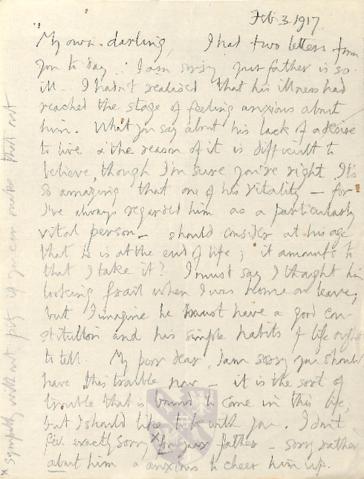 Feb. 3. 1917.
My own darling, I had two letters from
you to day. I am sorry your father is so
ill. I hadn't realised that his illness had
reached the stage of feeling anxious about
him. What you say about his lack of a desire
to live & the reason of it is difficult to
believe, though I'm sure you're right. It's
so amazing that one of his vitality — for
I've always regarded him as a particularly
vital person — should consider at his age
that he is at the end of life; it amounts to
that I take it? I must say I thought him
looking frail when I was home on leave,
but I imagine he must have a good con-
stitution and his simple habits of life ought
to tell. My poor dear, I am sorry you should
have this trouble now — it is the sort of
trouble that is bound to come in this life,
but I should like to be with you. I don't
feel exactly sorry x for your father — sorry rather
about him & anxious to cheer him up.
x sympathy without pity if you can make that out